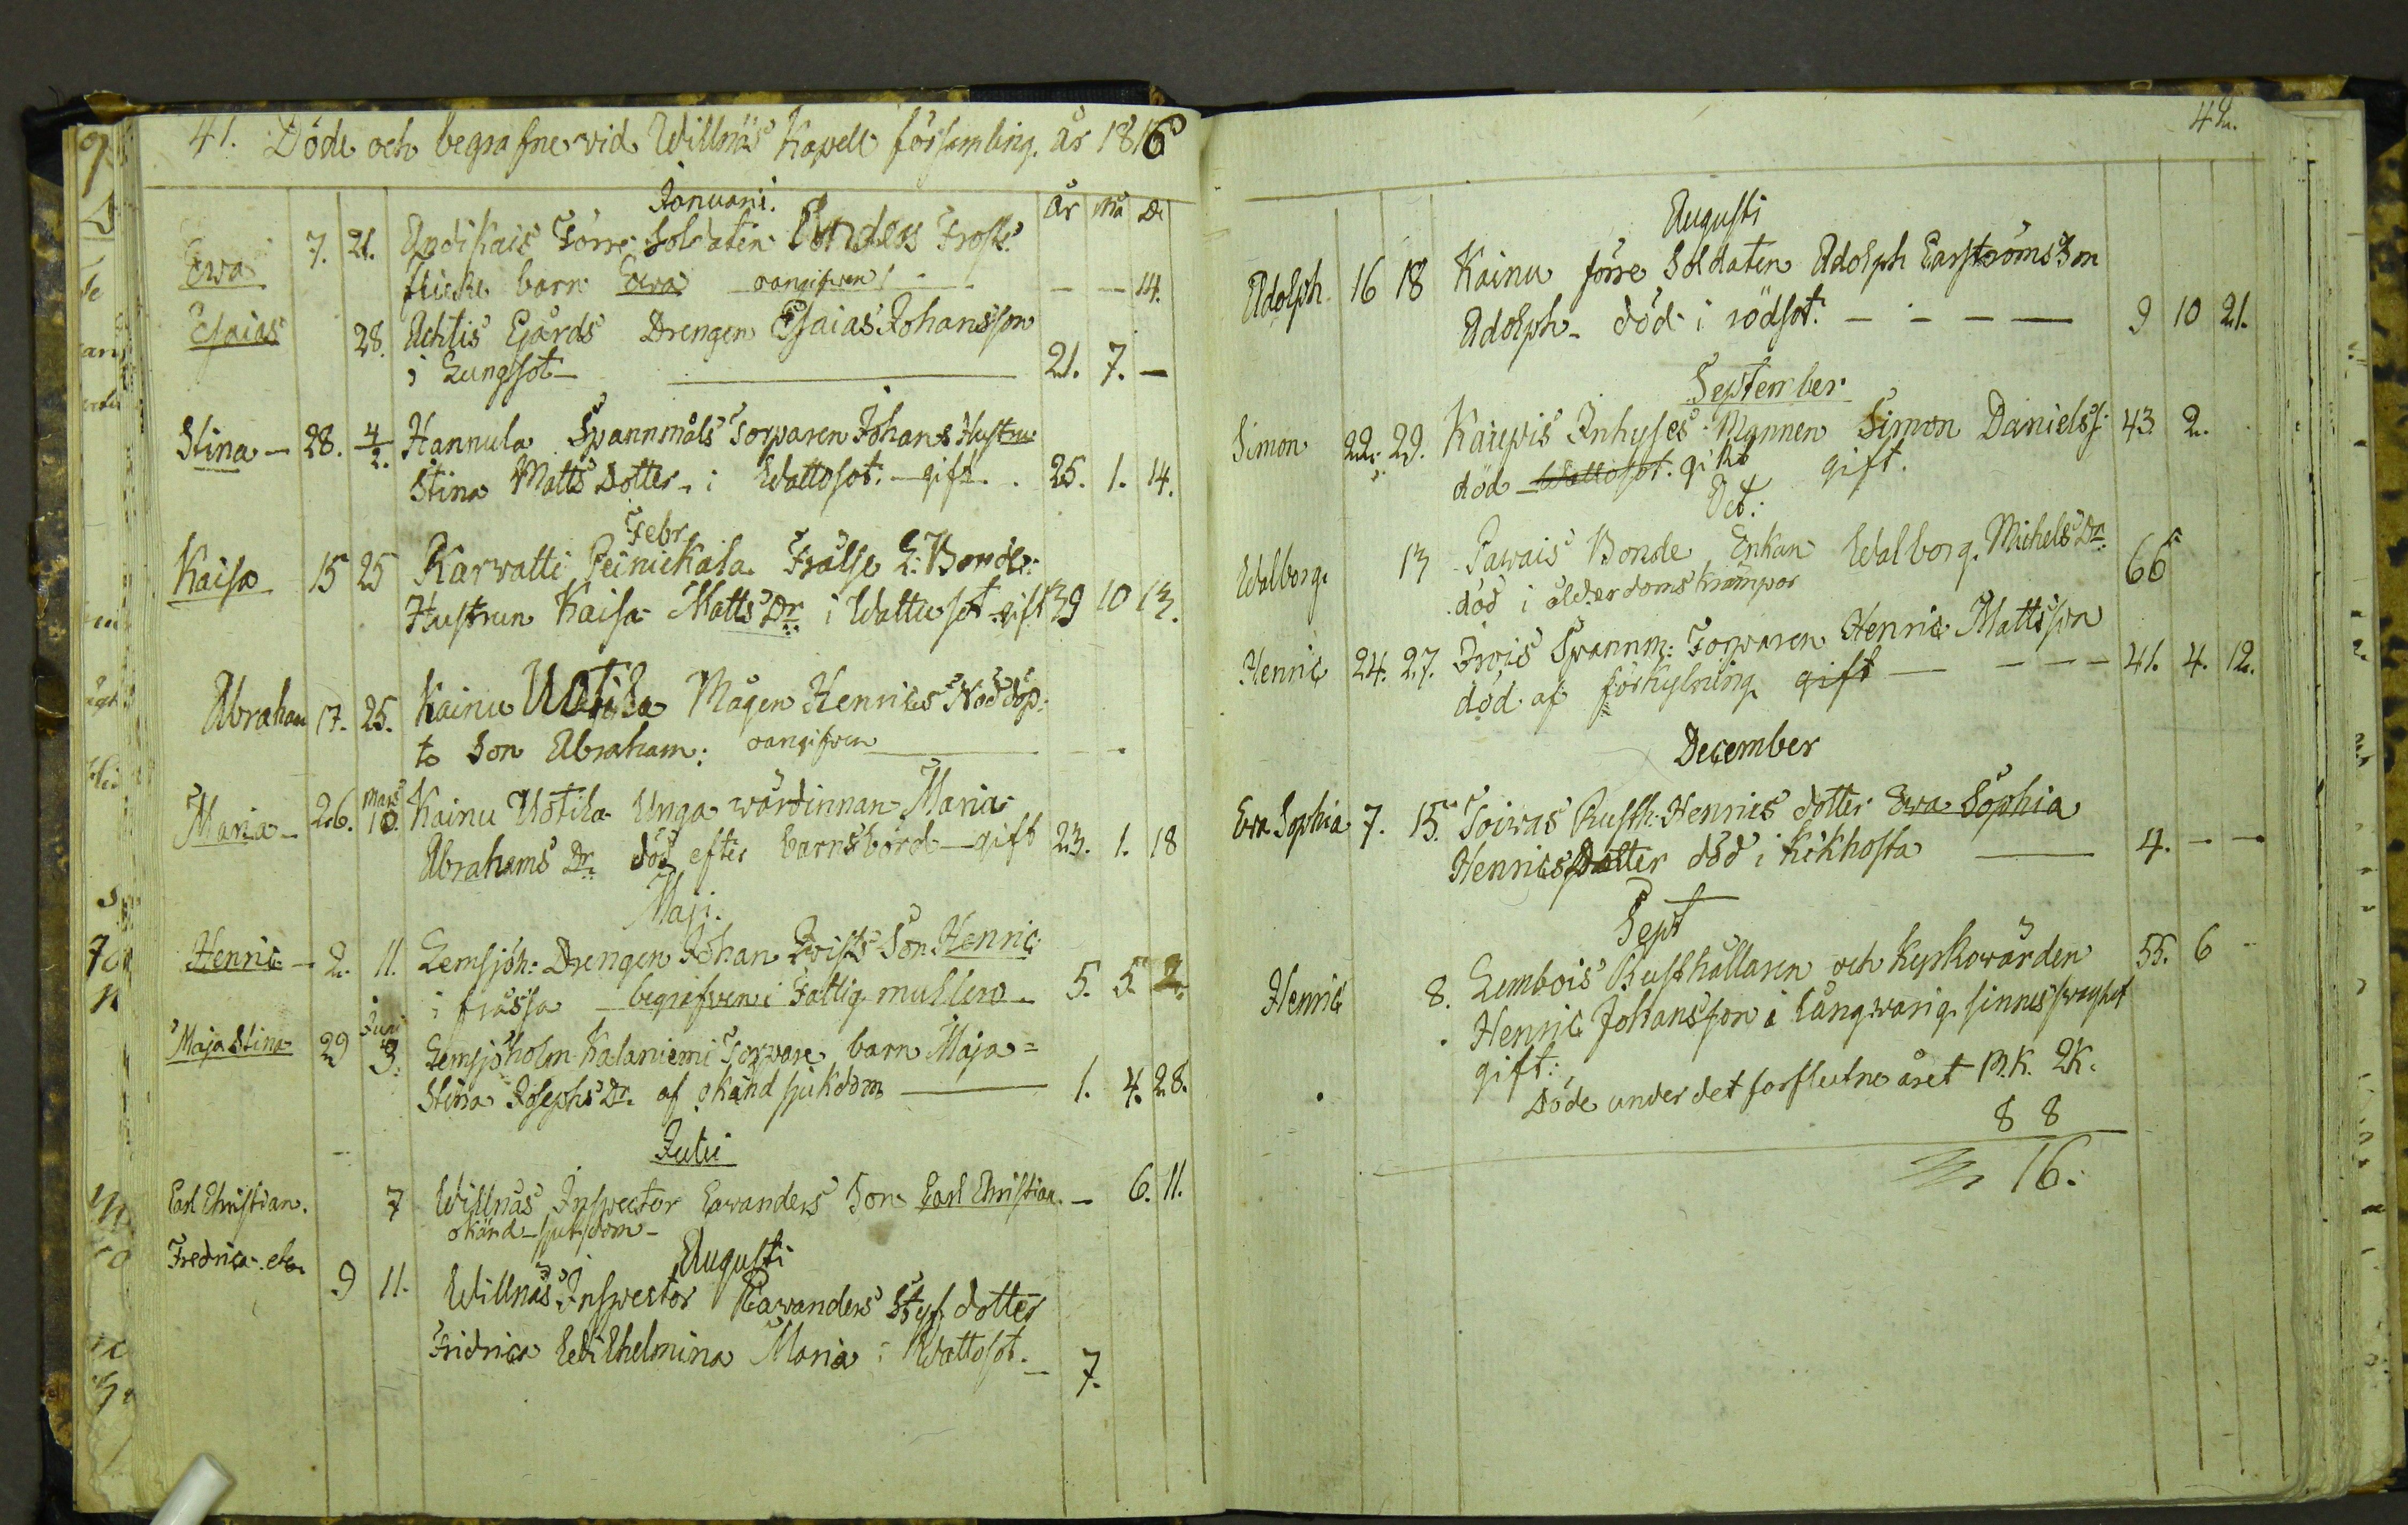 41. Döde och begrafne vid Willnäs Kapell församling. år 1816
Januarii.
år må D.
Ewa 7. 21. Andikais Förre Soldaten Anders Frosts
flicke barn Ewa oangifven - - - 14.
Esaias 28. Achtis Gjärds Drengen Esaias Johansson
i Lungsot 21. 7. -
Stina - 28. 4/2. Hannula Spannmåls Torparen Johans Hustru
Stina Matts Dotter, i Wattosot: gift. 25. 1. 14.
Febr
Kaisa 15 25 Karvatti Peinikala Frälse L: Bonde:
Hustrun Kaisa Matts Dr. i Wattusot gift 39 10 13.
Abraham 17. 25. Kainu Uotila Mågen Henrics Nöddöp:
te Son Abraham: oangifven
Mars
Maria - 26. 10. Kainu Uotila Unga wärdinnan Maria
Abrahams Dr. död efter barnsbörd - gift 23. 1. 18
Maji.
Henric - 2. 11. Lemsjöh: Drengen Johan Qwists Son Henric
i frässa begrafven i Fattig mullen 5. 5. 2.
Juni
Maja Stina 29 3. Lemsjöholm Kalaniemi Torpare barn Maja =
Stina Josephs Dr. af okänd sjukdom 1. 4. 28.
Julii
Carl Christian. 7 Willnäs Inspector Ewanders Son Carl Christian. - 6. 11.
okänd sjukdom -
Augusti
Fredrica. etc. 9 11. Willnäs Inspector Ewanders Styf dotter
Fridrica Wilhelmina Maria i Wattosot. - 7.
42.
Augusti
Adolph 16 18 Kainu förre Soldaten Adolph Carströms Son
Adolph - död i rödsot. - - - - 9 10 21.
September
Simon 22. 29. Kaupis Inhyses Mannen Simon Danielss: 43 2.
död Wattosot. gikt gift.
Oct:
Walborg. 13 Pawais Bonde Enkan Walborg. Michels Dr. 66
död i ålderdoms krämpor
Henric 24. 27. Irois Spannm: Torparen Henric Mattsson
död af förkylning gift - - - - 41. 4. 12.
December
Ewa Sophia 7. 15. Toivas Rusth: Henrics dotter Ewa Sophia
Henrics Dotter död i kikhosta 4. - -
Sept
Henric 8. Lembois Rusthållaren och Kyrkowärden 55. 6
Henric Johansson i långwarig sinnessvaghet
gift:
Döde under det förflutne året M.K. QK.
8 8
16.